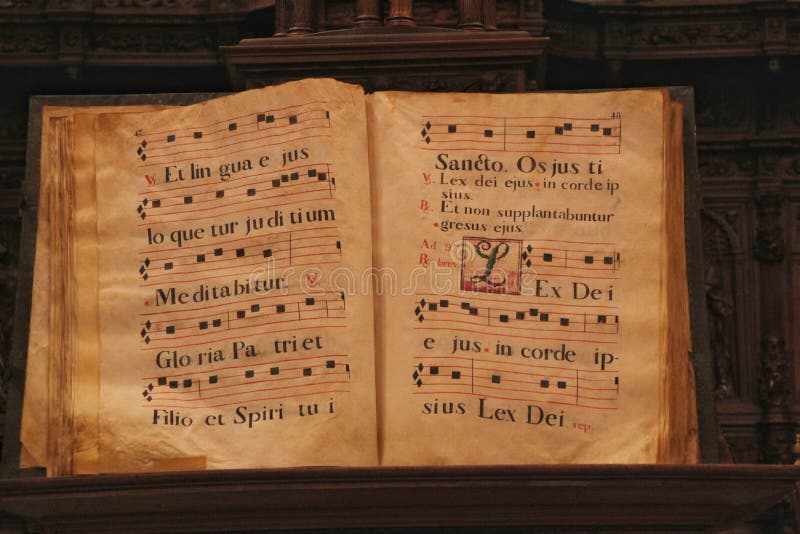 47
℣ Et lin gua e jus
lo que tur ju di tium
Meditabitur. ℣
Glo ria Pa tri et
Filio et Spiri tu i
48
Sancto. Os jus ti
℣ Lex dei ejus * in corde ip
sius.
℞ Et non supplantabuntur
* gresus ejus.
Ad 9
℞ brev.
L Ex De i
e jus * in corde ip-
sius Lex Dei rep.
dreamstime